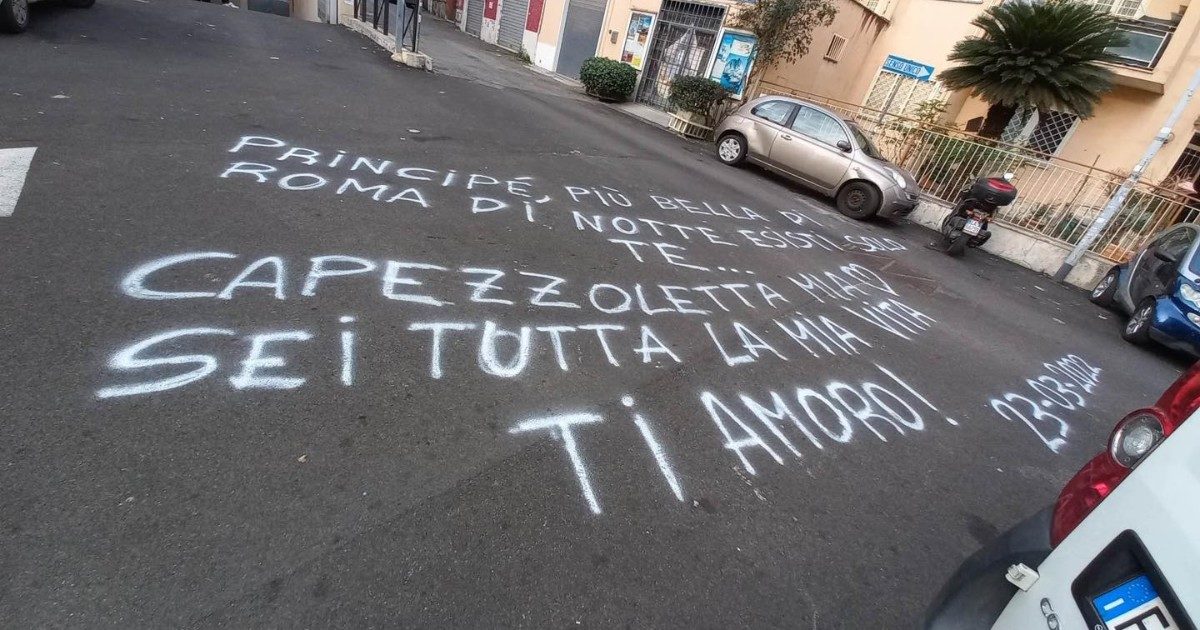 PRINCIPÉ, PIÙ BELLA DI
ROMA DI NOTTE ESISTI SOLO
TE...
CAPEZZOLETTA MIA♡
SEI TUTTA LA MIA VITA
TI AMORO!
23-03-2022
SENSO UNICO